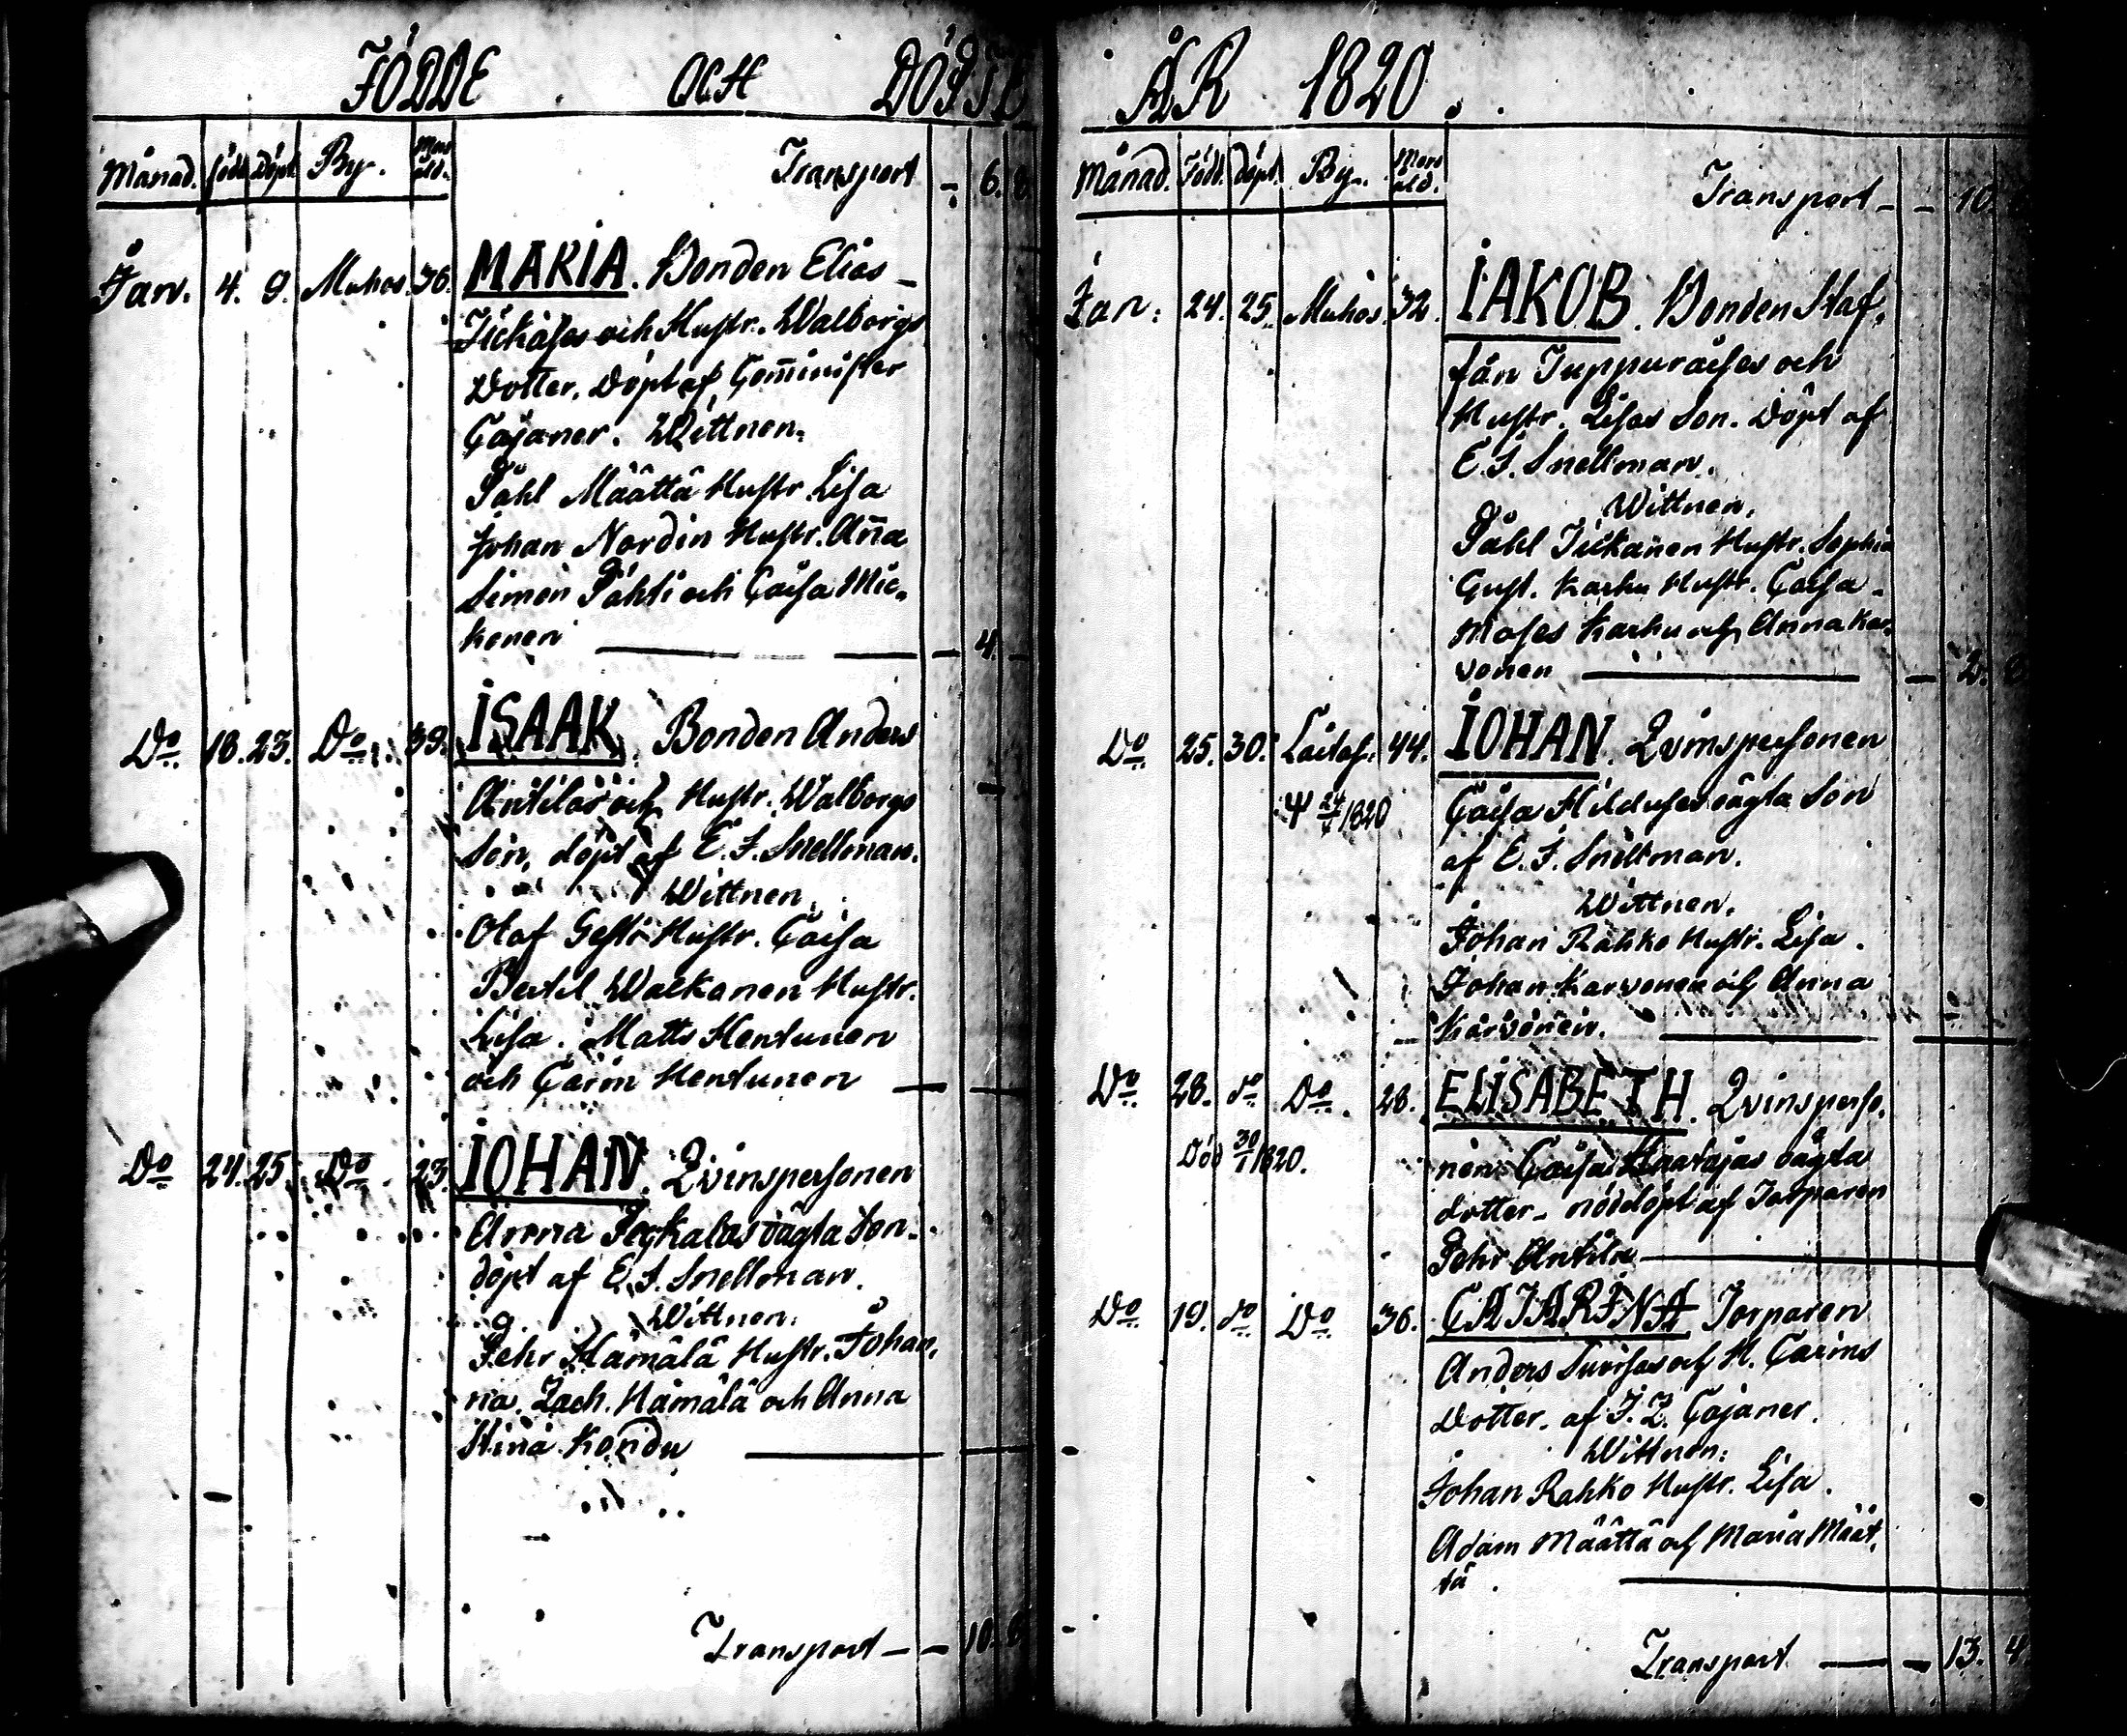 FÖDDE OCH DÖPTE
Månad. född Döpt By. Mors åld. Transport - 6. 8
Jan. 4. 9. Muhos. 36. MARIA. Bonden Elias
och Hustr. Walborgs
Dotter. Döpt af Com̄inister
Cajaner. Wittnen.
Påhl Määttä Hustr. Lisa
Johan Nordin Hustr. An̄a
Simon Pähti och Caisa Mic-
konen — 4. -
Do 18. 23. Do 39. ISAAK. Bonden Anders
Antilas och Hustr. Walborgs
Son, döpt af E. J. Snellman.
Wittnen.
Olof Hustr. Caisa
Bertil Walkonen Hustr.
Lisa. Matts Hentunen
och Carin Hentunen — —
Do 24. 25. Do 23. IOHAN. Qvinspersonen
Anna oägta Son
döpt af E. J. Snellman.
Wittnen.
Pehr Hämälä Hustr. Johan-
na. Zach. Hämälä och Anna
Stina Kondu —
Transport — - 10. 8
ÅR 1820.
Månad. Född. döpt. By. Mors åld. Transport - - 10. 8
Jan. 24. 25. Muhos. 32. IAKOB. Bonden Staf-
fan Juppuraises och
Hustr. Lisas Son. Döpt af
E. J. Snellman.
Wittnen.
Påhl Tickanen Hustr. Sophia
Gust. Karhu Hustr. Caisa
Moses Karhu och Anna Kar-
vonen — - 2. 8
Do 25. 30. Laitas. 44. IOHAN. Qvinspersonen
1820 Caisa oägta Son
af E. J. Snellman.
Wittnen.
Johan Rahko Hustr. Lisa.
Johan Karvonen och Anna
Karvonen. —
Do 28. do Do. 28. ELISABETH. Qvinsperso-
Död 30/1 1820. nen Caisa Haatajas oägta
dotter - nöddöpt af Torparen
Pehr Antila —
Do 19. do Do 36. CATARINA Torparen
Anders och H. Carins
Dotter. af J. Z. Cajaner.
Wittnen:
Johan Rahko Hustr. Lisa.
Adam Määttä och Maria Määt-
tä. —
Transport — - 13. 4